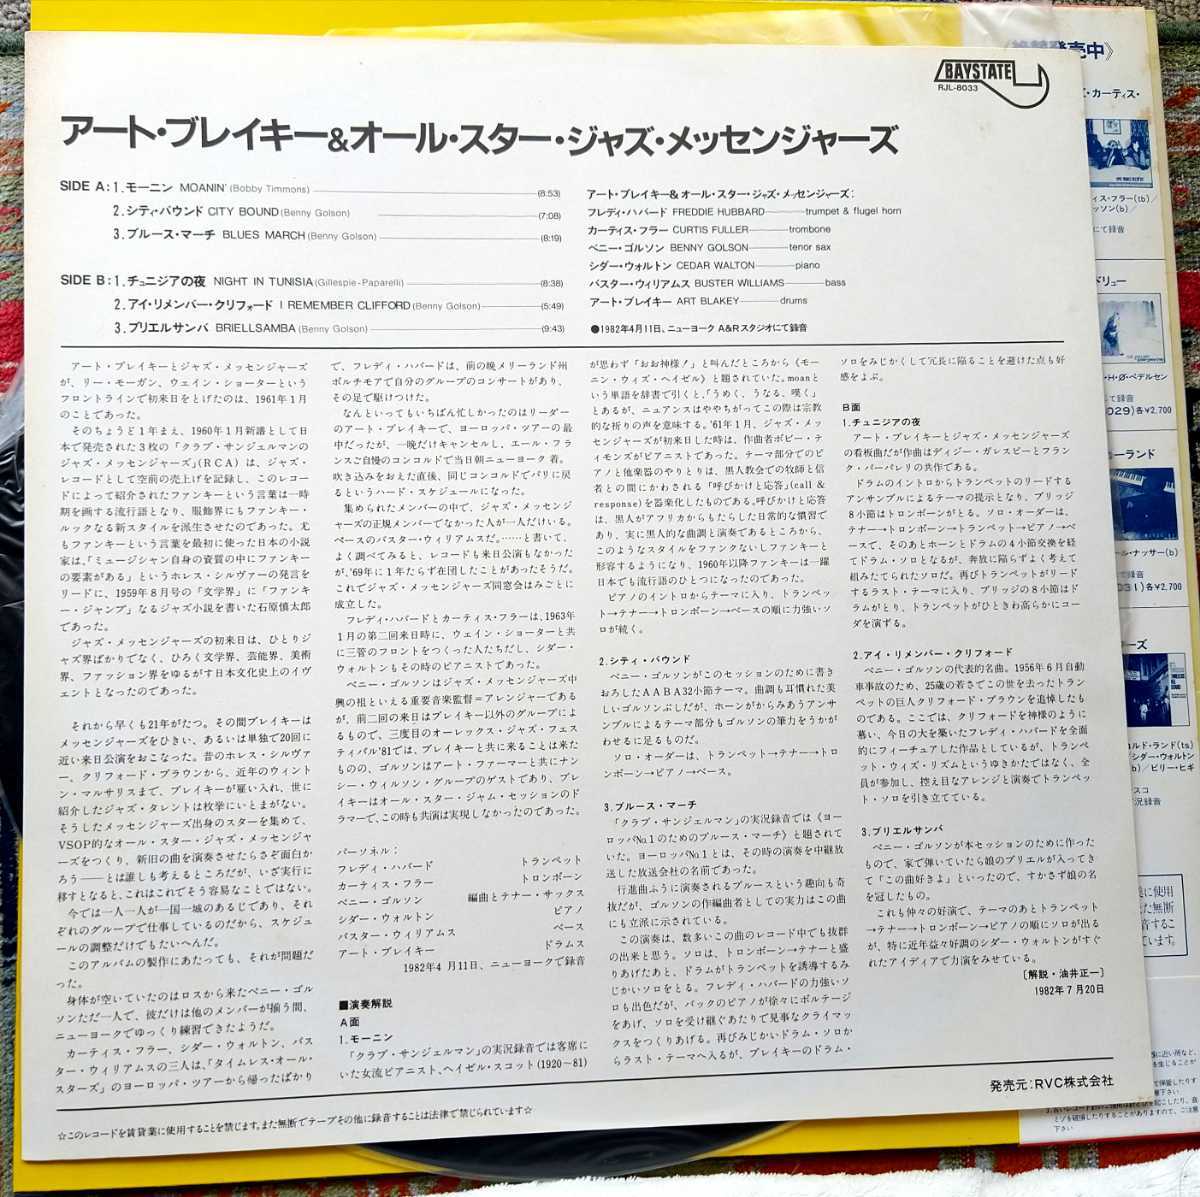 BAYSTATE
RJL-8033
アート・ブレイキー&オール・スター・ジャズ・メッセンジャーズ
SIDE A: 1. モーニン MOANIN' (Bobby Timmons) (8:53)
2. シティ・バウンド CITY BOUND (Benny Golson) (7:08)
3. ブルース・マーチ BLUES MARCH (Benny Golson) (8:19)
SIDE B: 1. チュニジアの夜 NIGHT IN TUNISIA (Gillespie-Paparelli) (8:38)
2. アイ・リメンバー・クリフォード I REMEMBER CLIFFORD (Benny Golson) (5:49)
3. ブリエルサンバ BRIELLSAMBA (Benny Golson) (9:43)
アート・ブレイキー&オール・スター・ジャズ・メッセンジャーズ:
フレディ・ハバード FREDDIE HUBBARD trumpet & flugel horn
カーティス・フラー CURTIS FULLER trombone
ベニー・ゴルソン BENNY GOLSON tenor sax
シダー・ウォルトン CEDAR WALTON piano
バスター・ウィリアムス BUSTER WILLIAMS bass
アート・ブレイキー ART BLAKEY drums
●1982年4月11日、ニューヨーク A&Rスタジオにて録音
アート・ブレイキーとジャズ・メッセンジャーズ
が、リー・モーガン、ウェイン・ショーターという
フロントラインで初来日をとげたのは、1961年1月
のことであった。
そのちょうど1年まえ、1960年1月新譜として日
本で発売された3枚の「クラブ・サンジェルマンの
ジャズ・メッセンジャーズ」(RCA)は、ジャズ・
レコードとして空前の売上げを記録し、このレコ
ードによって紹介されたファンキーという言葉は一時
期を画する流行語となり、服飾界にもファンキー・
ルックなる新スタイルを派生させたのであった。尤
もファンキーという言葉を最初に使った日本の小説
家は、「ミュージシャン自身の資質の中にファンキー
の要素がある」というホレス・シルヴァーの発言を
リードに、1959年8月号の「文学界」に「ファンキ
ー・ジャンプ」なるジャズ小説を書いた石原慎太郎
であった。
ジャズ・メッセンジャーズの初来日は、ひとりジ
ャズ界ばかりでなく、ひろく文学界、芸能界、美術
界、ファッション界をゆるがす日本文化史上のイヴ
ェントとなったのであった。
それから早くも21年がたつ。その間ブレイキーは
メッセンジャーズをひきい、あるいは単独で20回に
近い来日公演をおこなった。昔のホレス・シルヴァ
ー、クリフォード・ブラウンから、近年のウィント
ン・マルサリスまで、ブレイキーが雇い入れ、世に
紹介したジャズ・タレントは枚挙にいとまがない。
そうしたメッセンジャーズ出身のスターを集めて、
VSOP的なオール・スター・ジャズ・メッセンジャ
ーズをつくり、新旧の曲を演奏させたらさぞ面白か
ろう――とは誰しも考えるところだが、いざ実行に
移すとなると、これはこれでそう容易なことではない。
今では一人一人が一国一城のあるじであり、それ
ぞれのグループで仕事しているのだから、スケジュ
ールの調整だけでもたいへんだ。
このアルバムの製作にあたっても、それが問題だ
った。
身体が空いていたのはロスから来たベニー・ゴル
ソンただ一人で、彼だけは他のメンバーが揃う間、
ニューヨークでゆっくり練習できたようだ。
カーティス・フラー、シダー・ウォルトン、バス
ター・ウィリアムスの三人は、「タイムレス・オール・
スターズ」のヨーロッパ・ツアーから帰ったばかり
で、フレディ・ハバードは、前の晩メリーランド州
ボルチモアで自分のグループのコンサートがあり、
その足で駆けつけた。
なんといってもいちばん忙しかったのはリーダー
のアート・ブレイキーで、ヨーロッパ・ツアーの最
中だったが、一晩だけキャンセルし、エール・フラ
ンスご自慢のコンコルドで当日朝ニューヨーク着。
吹き込みをおえた直後、同じコンコルドでパリに戻
るというハード・スケジュールになった。
集められたメンバーの中で、ジャズ・メッセンジ
ャーズの正規メンバーでなかった人が一人だけいる。
ベースのバスター・ウィリアムスだ。……と書いて、
よく調べてみると、レコードも来日公演もなかった
が、'69年に1年たらず在団したことがあったそうだ。
これでジャズ・メッセンジャーズ同窓会はみごとに
成立した。
フレディ・ハバードとカーティス・フラーは、1963年
1月の第二回来日時に、ウェイン・ショーターと共
に三管のフロントをつくった人たちだし、シダー・
ウォルトンもその時のピアニストであった。
ベニー・ゴルソンはジャズ・メッセンジャーズ中
興の祖といえる重要音楽監督=アレンジャーである
が、前二回の来日はブレイキー以外のグループによ
るもので、三度目のオーレックス・ジャズ・フェス
ティバル'81では、ブレイキーと共に来ることは来た
ものの、ゴルソンはアート・ファーマーと共にナン
シー・ウィルソン・グループのゲストであり、ブレ
イキーはオール・スター・ジャム・セッションのド
ラマーで、この時も共演は実現しなかったのであった。
パーソネル:
フレディ・ハバード トランペット
カーティス・フラー トロンボーン
ベニー・ゴルソン 編曲とテナー・サックス
シダー・ウォルトン ピアノ
バスター・ウィリアムス ベース
アート・ブレイキー ドラムス
1982年4月11日、ニューヨークで録音
■演奏解説
A面
1.モーニン
「クラブ・サンジェルマン」の実況録音では客席に
いた女流ピアニスト、ヘイゼル・スコット(1920〜81)
が思わず「おお神様！」と叫んだところから《モー
ニン・ウィズ・ヘイゼル》と題されていた。moanと
いう単語を辞書で引くと、「うめく、うなる、嘆く」
とあるが、ニュアンスはややちがってこの際は宗教
的な祈りの声を意味する。'61年1月、ジャズ・メッ
センジャーズが初来日した時は、作曲者ボビー・テ
ィモンズがピアニストであった。テーマ部分でのピ
アノと他楽器のやりとりは、黒人教会での牧師と信
者との間にかわされる「呼びかけと応答」(call &
response)を器楽化したものである。呼びかけと応答
は、黒人がアフリカからもたらした日常的な慣習で
あり、実に黒人的な曲調と演奏であるところから、
このようなスタイルをファンクないしファンキーと
形容するようになり、1960年以降ファンキーは一躍
日本でも流行語のひとつになったのであった。
ピアノのイントロからテーマに入り、トランペッ
ト→テナー→トロンボーン→ベースの順に力強いソ
ロが続く。
2.シティ・バウンド
ベニー・ゴルソンがこのセッションのために書き
おろしたAABA32小節テーマ。曲調も耳慣れた美
しいゴルソンぶしだが、ホーンがからみあうアンサ
ンブルによるテーマ部分もゴルソンの筆力をうかが
わせるに足るものだ。
ソロ・オーダーは、トランペット→テナー→トロ
ンボーン→ピアノ→ベース。
3.ブルース・マーチ
「クラブ・サンジェルマン」の実況録音では《ヨー
ロッパNo.1のためのブルース・マーチ》と題されて
いた。ヨーロッパNo.1とは、その時の演奏を中継放
送した放送会社の名前であった。
行進曲ふうに演奏されるブルースという趣向も奇
抜だが、ゴルソンの作編曲者としての実力はこの曲
にも立派に示されている。
この演奏は、数多いこの曲のレコード中でも抜群
の出来と思う。ソロは、トロンボーン→テナーと盛
りあげたあと、ドラムがトランペットを誘導するみ
じかいソロをとる。フレディ・ハバードの力強いソ
ロも出色だが、バックのピアノが徐々にボルテージ
をあげ、ソロを受け継ぐあたりで見事なクライマッ
クスをつくりあげる。再びみじかいドラム・ソロか
らラスト・テーマへ入るが、ブレイキーのドラム・
ソロをみじかくして冗長に陥ることを避けた点も好
感をよぶ。
B面
1.チュニジアの夜
アート・ブレイキーとジャズ・メッセンジャーズ
の看板曲だが作曲はディジー・ガレスピーとフラン
ク・パーパレリの共作である。
ドラムのイントロからトランペットのリードする
アンサンブルによるテーマの提示となり、ブリッジ
8小節はトロンボーンがとる。ソロ・オーダーは、
テナー→トロンボーン→トランペット→ピアノ→ベ
ースで、そのあとホーンとドラムの4小節交換を経
てドラム・ソロとなるが、奔放に陥らずよく考えて
組みたてられたソロだ。再びトランペットがリード
するラスト・テーマに入り、ブリッジの8小節はド
ラムがとり、トランペットがひときわ高らかにコー
ダを演ずる。
2.アイ・リメンバー・クリフォード
ベニー・ゴルソンの代表的名曲。1956年6月自動
車事故のため、25歳の若さでこの世を去ったトラン
ペットの巨人クリフォード・ブラウンを追悼したも
のである。ここでは、クリフォードを神様のように
慕い、今日の大を築いたフレディ・ハバードを全面
的にフィーチュアした作品としているが、トランペ
ット・ウィズ・リズムというゆきかたではなく、全
員が参加し、控え目なアレンジと演奏でトランペッ
ト・ソロを引き立てている。
3.ブリエルサンバ
ベニー・ゴルソンが本セッションのために作った
もので、家で弾いていたら娘のブリエルが入ってき
て「この曲好きよ」といったので、すかさず娘の名
を冠したもの。
これも仲々の好演で、テーマのあとトランペット
→テナー→トロンボーン→ピアノの順にソロが出る
が、特に近年益々好調のシダー・ウォルトンがすぐ
れたアイディアで力演をみせている。
〔解説・油井正一〕
1982年7月20日
発売元：RVC株式会社
☆このレコードを賃貸業に使用することを禁じます。また無断でテープその他に録音することは法律で禁じられています☆
発売中》
・カーティス・
ィス・フラー(tb)/
ッソン(b)/
にて録音
ドリュー
・H・Ø・ペデルセン
にて録音
029) 各¥2,700
ーランド
ール・ナッサー(b)
録音
031) 各¥2,700
ーズ
ルド・ランド(ts)
シダー・ウォルトン
(b)/ビリー・ヒギ
スコ
況録音
に使用
た無断
音するこ
ています。